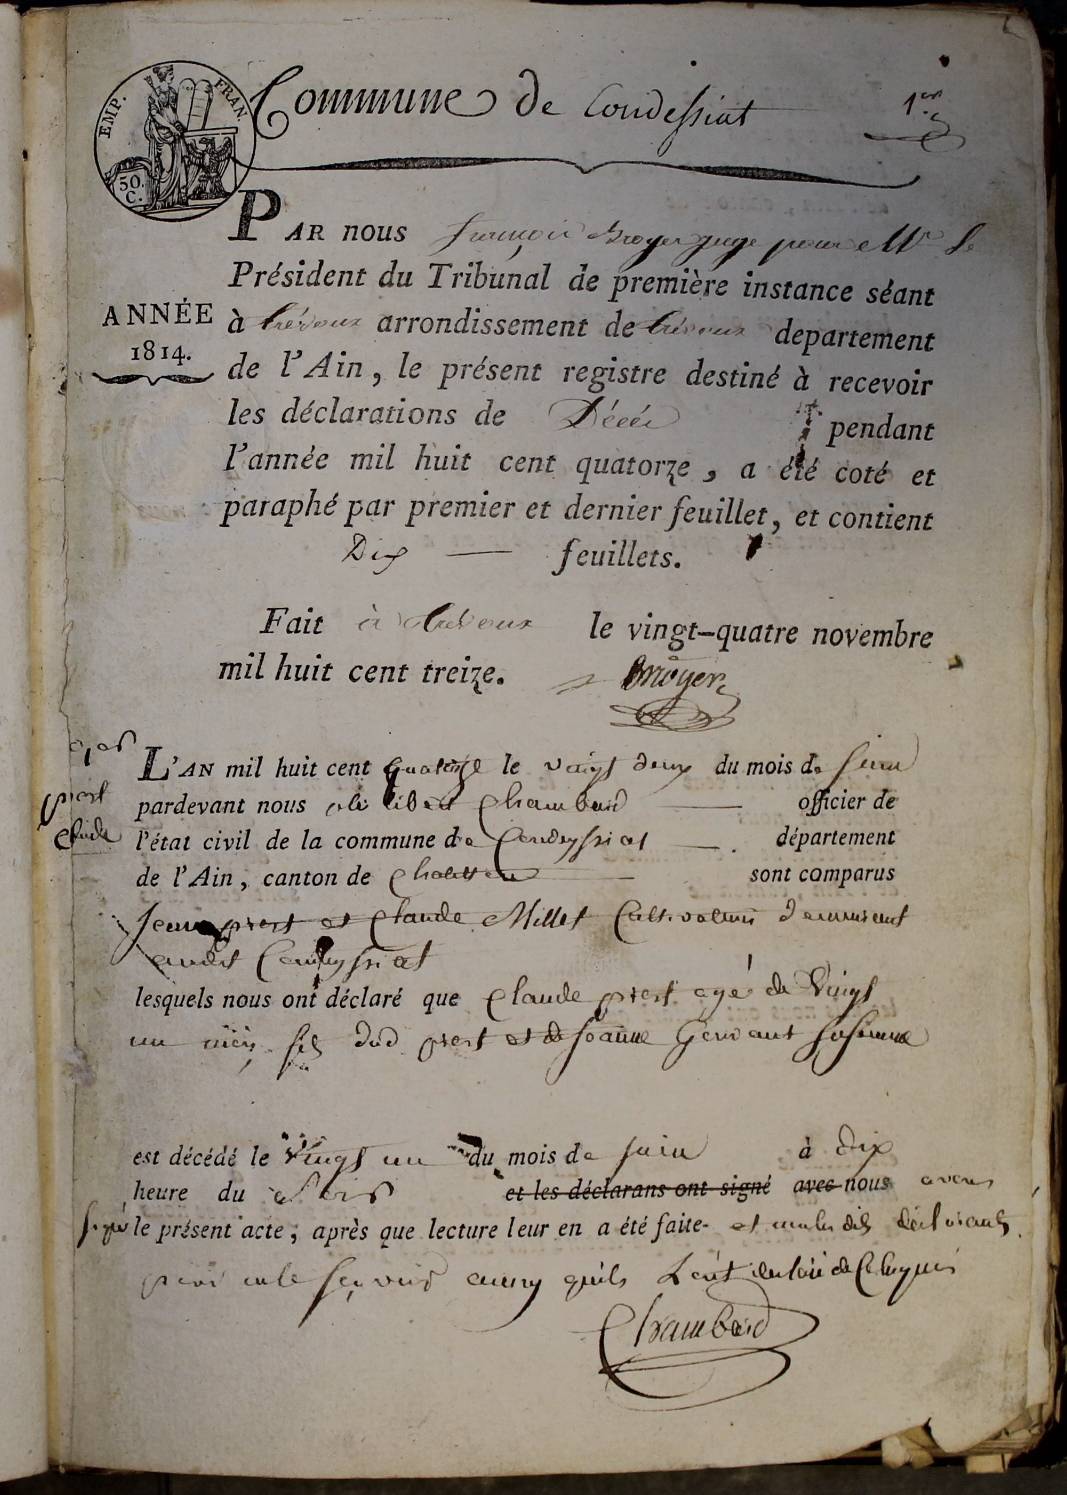 EMP. FRAN
50. C.
Commune de Condessiat
1er
PAR nous françois Broyer juge pour Mr Le
Président du Tribunal de première instance séant
ANNÉE
1814.
à trévoux arrondissement de trévoux departement
de l'Ain, le présent registre destiné à recevoir
les déclarations de Décés pendant
l'année mil huit cent quatorze, a été coté et
paraphé par premier et dernier feuillet, et contient
Dix — feuillets.
Fait à trévoux le vingt-quatre novembre
mil huit cent treize. Broyer
L'AN mil huit cent quatorze le vingt deux du mois de juin
prost
Claude
pardevant nous Chambard — officier de
l'état civil de la commune de Condeyssiat — . département
de l'Ain, canton de Chatillon — sont comparus
Jean prost et Claude Millet Cultivateurs demeurant
audit Condeyssiat
lesquels nous ont déclaré que Claude prost agé de Vingt
un fils dud prost et de Joanne Gervant
est décédé le Vingt un du mois de juin à dix
heure du soir et les déclarans ont signé avec nous avons
signé le présent acte; après que lecture leur en a été faite et non les dits déclarants
pour ne le sçavoir ainsy qu'ils L'ont de ce Requis
Chambard